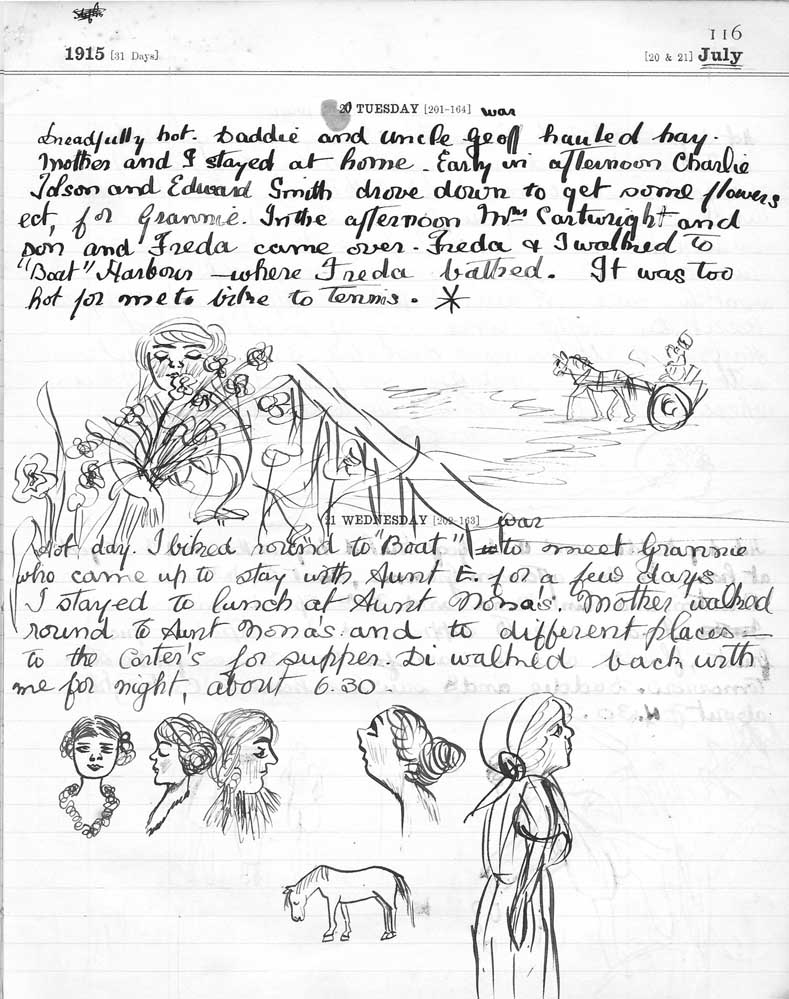 116
1915 [31 Days] [20 & 21] July
20 TUESDAY [201-164] war
Dreadfully hot. Daddie and Uncle Geoff hauled hay.
Mother and I stayed at home. Early in afternoon Charlie
and Edward Smith drove down to get some flowers
ect, for Grannie. In the afternoon Mrs Cartwright and
son and Freda came over. Freda & I walked to
"Boat" Harbour - where Freda bathed. It was too
hot for me to bike to Tennis.
21 WEDNESDAY [202-163] war
Hot day. I biked round to "Boat" to meet Grannie
who came up to stay with Aunt E. for a few days
I stayed to lunch at Aunt Nona's. Mother walked
round to Aunt Nona's. and to different places -
to the Carter's for supper. Di walked back with
me for night, about 6.30.